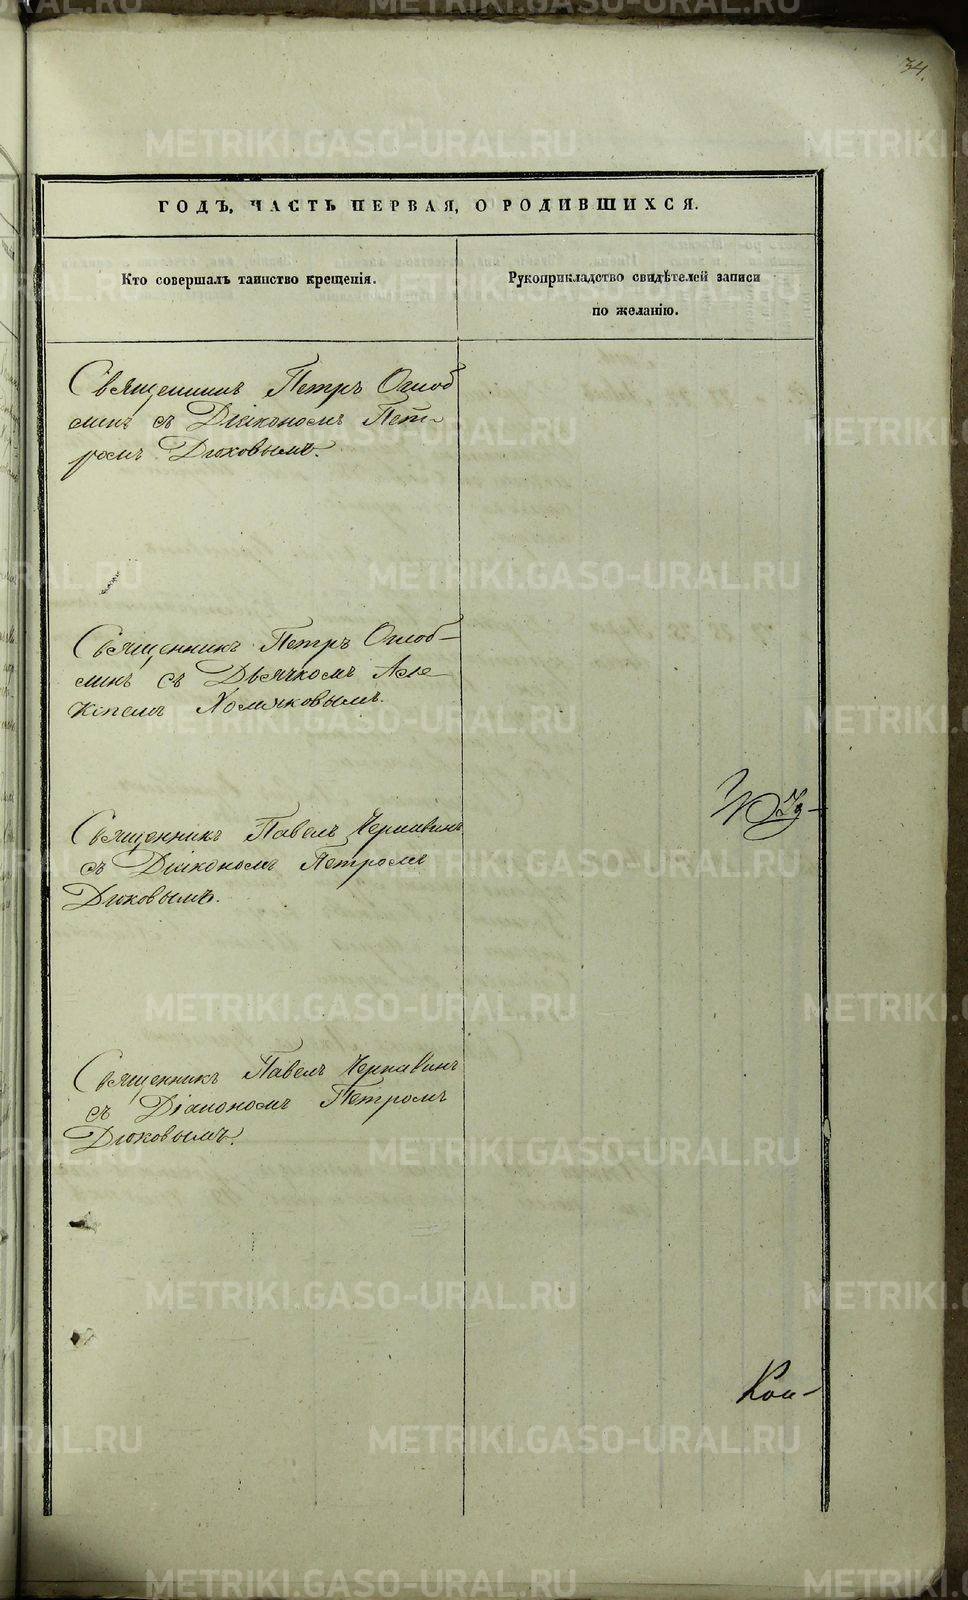 34.
ГОДЪ, ЧАСТЬ ПЕРВАЯ, О РОДИВШИХСЯ.
Кто совершалъ таинство крещенія.
Рукоприкладство свидѣтелей записи
по желанію.
Священникъ Петръ Оглоб
линъ съ Діакономъ Пет-
ромъ Дюковымъ.
Священникъ Петръ Оглоб-
линъ съ Дьячкомъ Але-
ксѣемъ Хомяковымъ.
Священникъ Павелъ Чернавинъ
съ Діакономъ Петромъ
Дюковымъ.
Священникъ Павелъ Чернавинъ
съ Діакономъ Петромъ
Дюковымъ.
METRIKI.GASO-URAL.RU